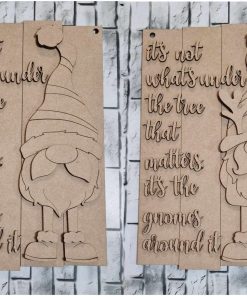 under
e
it
it's not
what's under
the tree
that
matters.
it's the
gnomes
around it